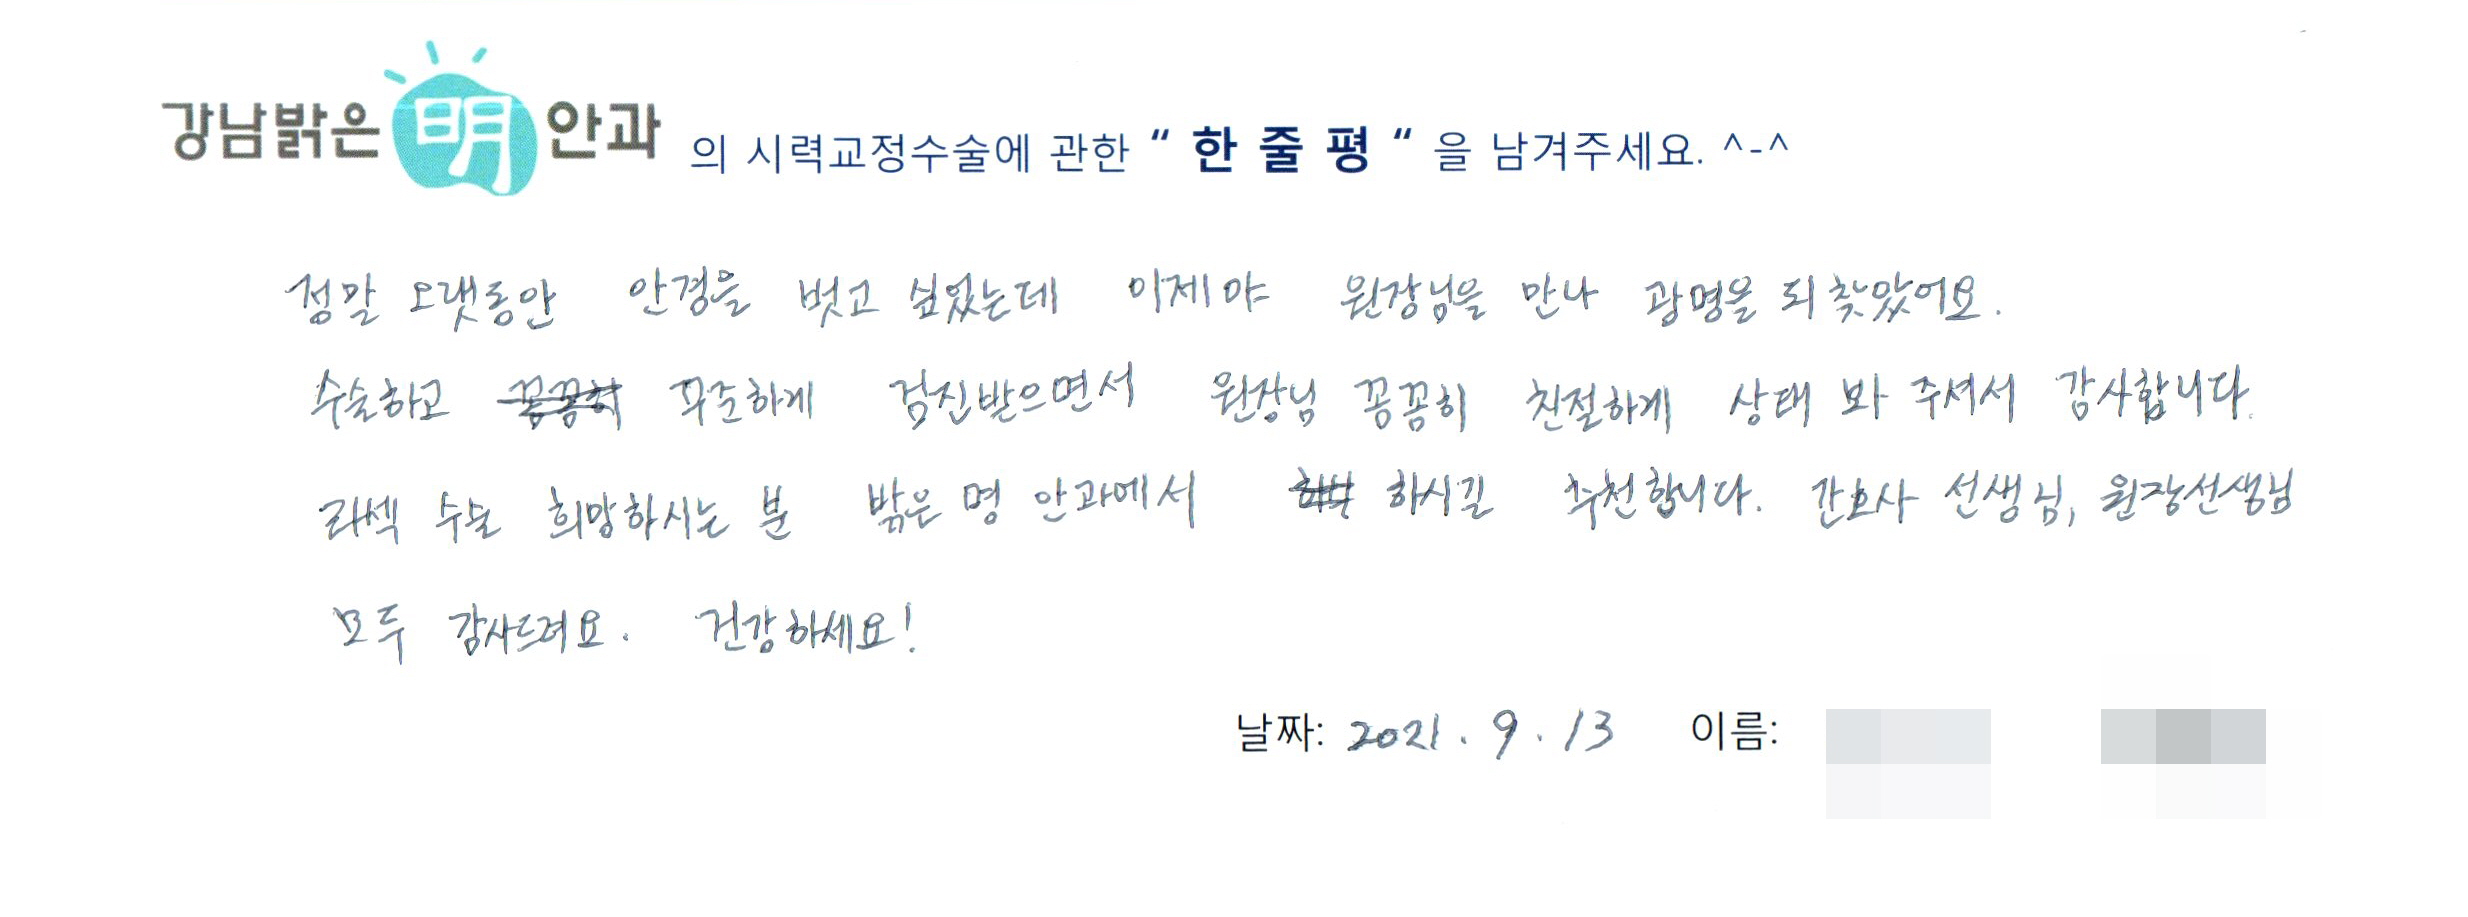 강남밝은明안과의 시력교정수술에 관한 “한줄평“을 남겨주세요. ^-^
정말 오랫동안 안경을 벗고 싶었는데 이제야 원장님을 만나 광명을 되찾았어요.
수술하고 꼼꼼히 꾸준하게 검진받으면서 원장님 꼼꼼히 친절하게 상태 봐 주셔서 감사합니다.
라섹 수술 희망하시는 분 밝은 명 안과에서 하시길 추천합니다. 간호사 선생님, 원장선생님
모두 감사드려요. 건강하세요!
날짜: 2021. 9. 13 이름: